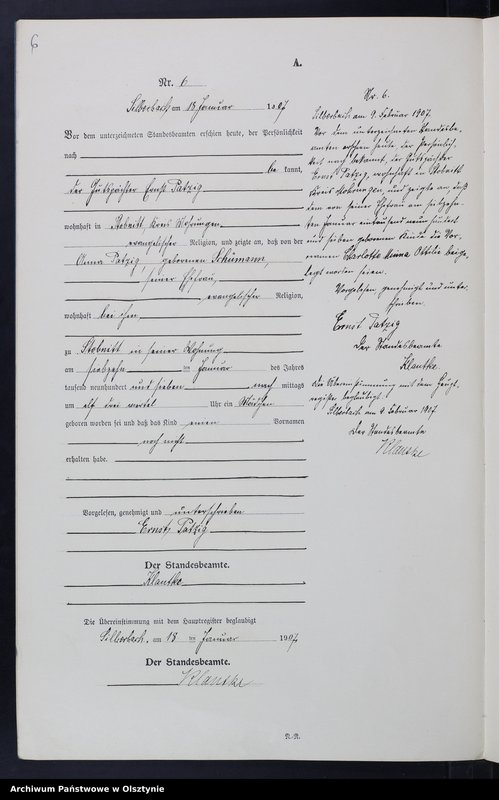 6
A.
Nr. 6
Silberbach am 18 Januar 1907
Vor dem unterzeichneten Standesbeamten erschien heute, der Persönlichkeit
nach
be kannt,
der Gutspächter Ernst Patzig
wohnhaft in Stobnitt Kreis Mohrungen
evangelischer Religion, und zeigte an, daß von der
Anna Patzig geborenen Schümann,
seiner Ehefrau,
evangelischer Religion,
wohnhaft bei ihm
zu Stobnitt in seiner Wohnung
am siebzehn ten Januar des Jahres
tausend neunhundert und sieben nach mittags
um elf drei viertel Uhr ein Mädchen
geboren worden sei und daß das Kind einen Vornamen
noch nicht
erhalten habe.
Vorgelesen, genehmigt und unterschrieben
Ernst Patzig
Der Standesbeamte.
Klautke
Die Übereinstimmung mit dem Hauptregister beglaubigt
Silberbach, am 18 ten Januar 1907
Der Standesbeamte.
Klautke
Nr. 6.
Silberbach am 9. Februar 1907.
Vor dem unterzeichneten Standesbe-
amten erschien heute, der Persönlich-
keit nach bekannt, der Gutspächter
Ernst Patzig, wohnhaft in Stobnitt
Kreis Mohrungen und zeigte an, daß
dem von seiner Ehefrau am siebzehn-
ten Januar eintausend neunhundert
und sieben geborenen Kinde die Vor-
namen Charlotte Minna Ottilie beige-
legt worden seien.
Vorgelesen, genehmigt und unter-
schrieben.
Ernst Patzig
Der Standesbeamte
Klautke.
Die Übereinstimmung mit dem Haupt-
register beglaubigt.
Silberbach am 9. Februar 1907
Der Standesbeamte
Klautke
Archiwum Państwowe w Olsztynie